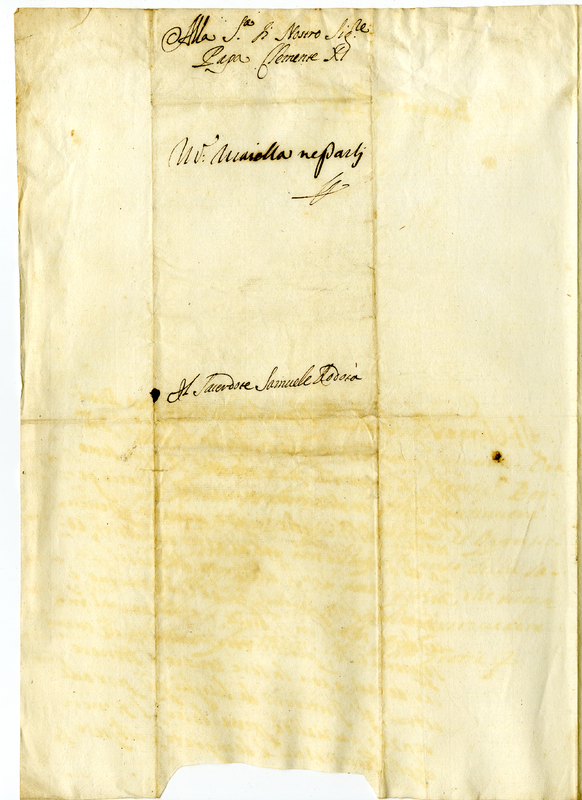 Alla S.tà di Nostro Sig.re
Papa Clemente XI
M.r Maiella ne parli
Il Sacerdote Samuele Rodotà